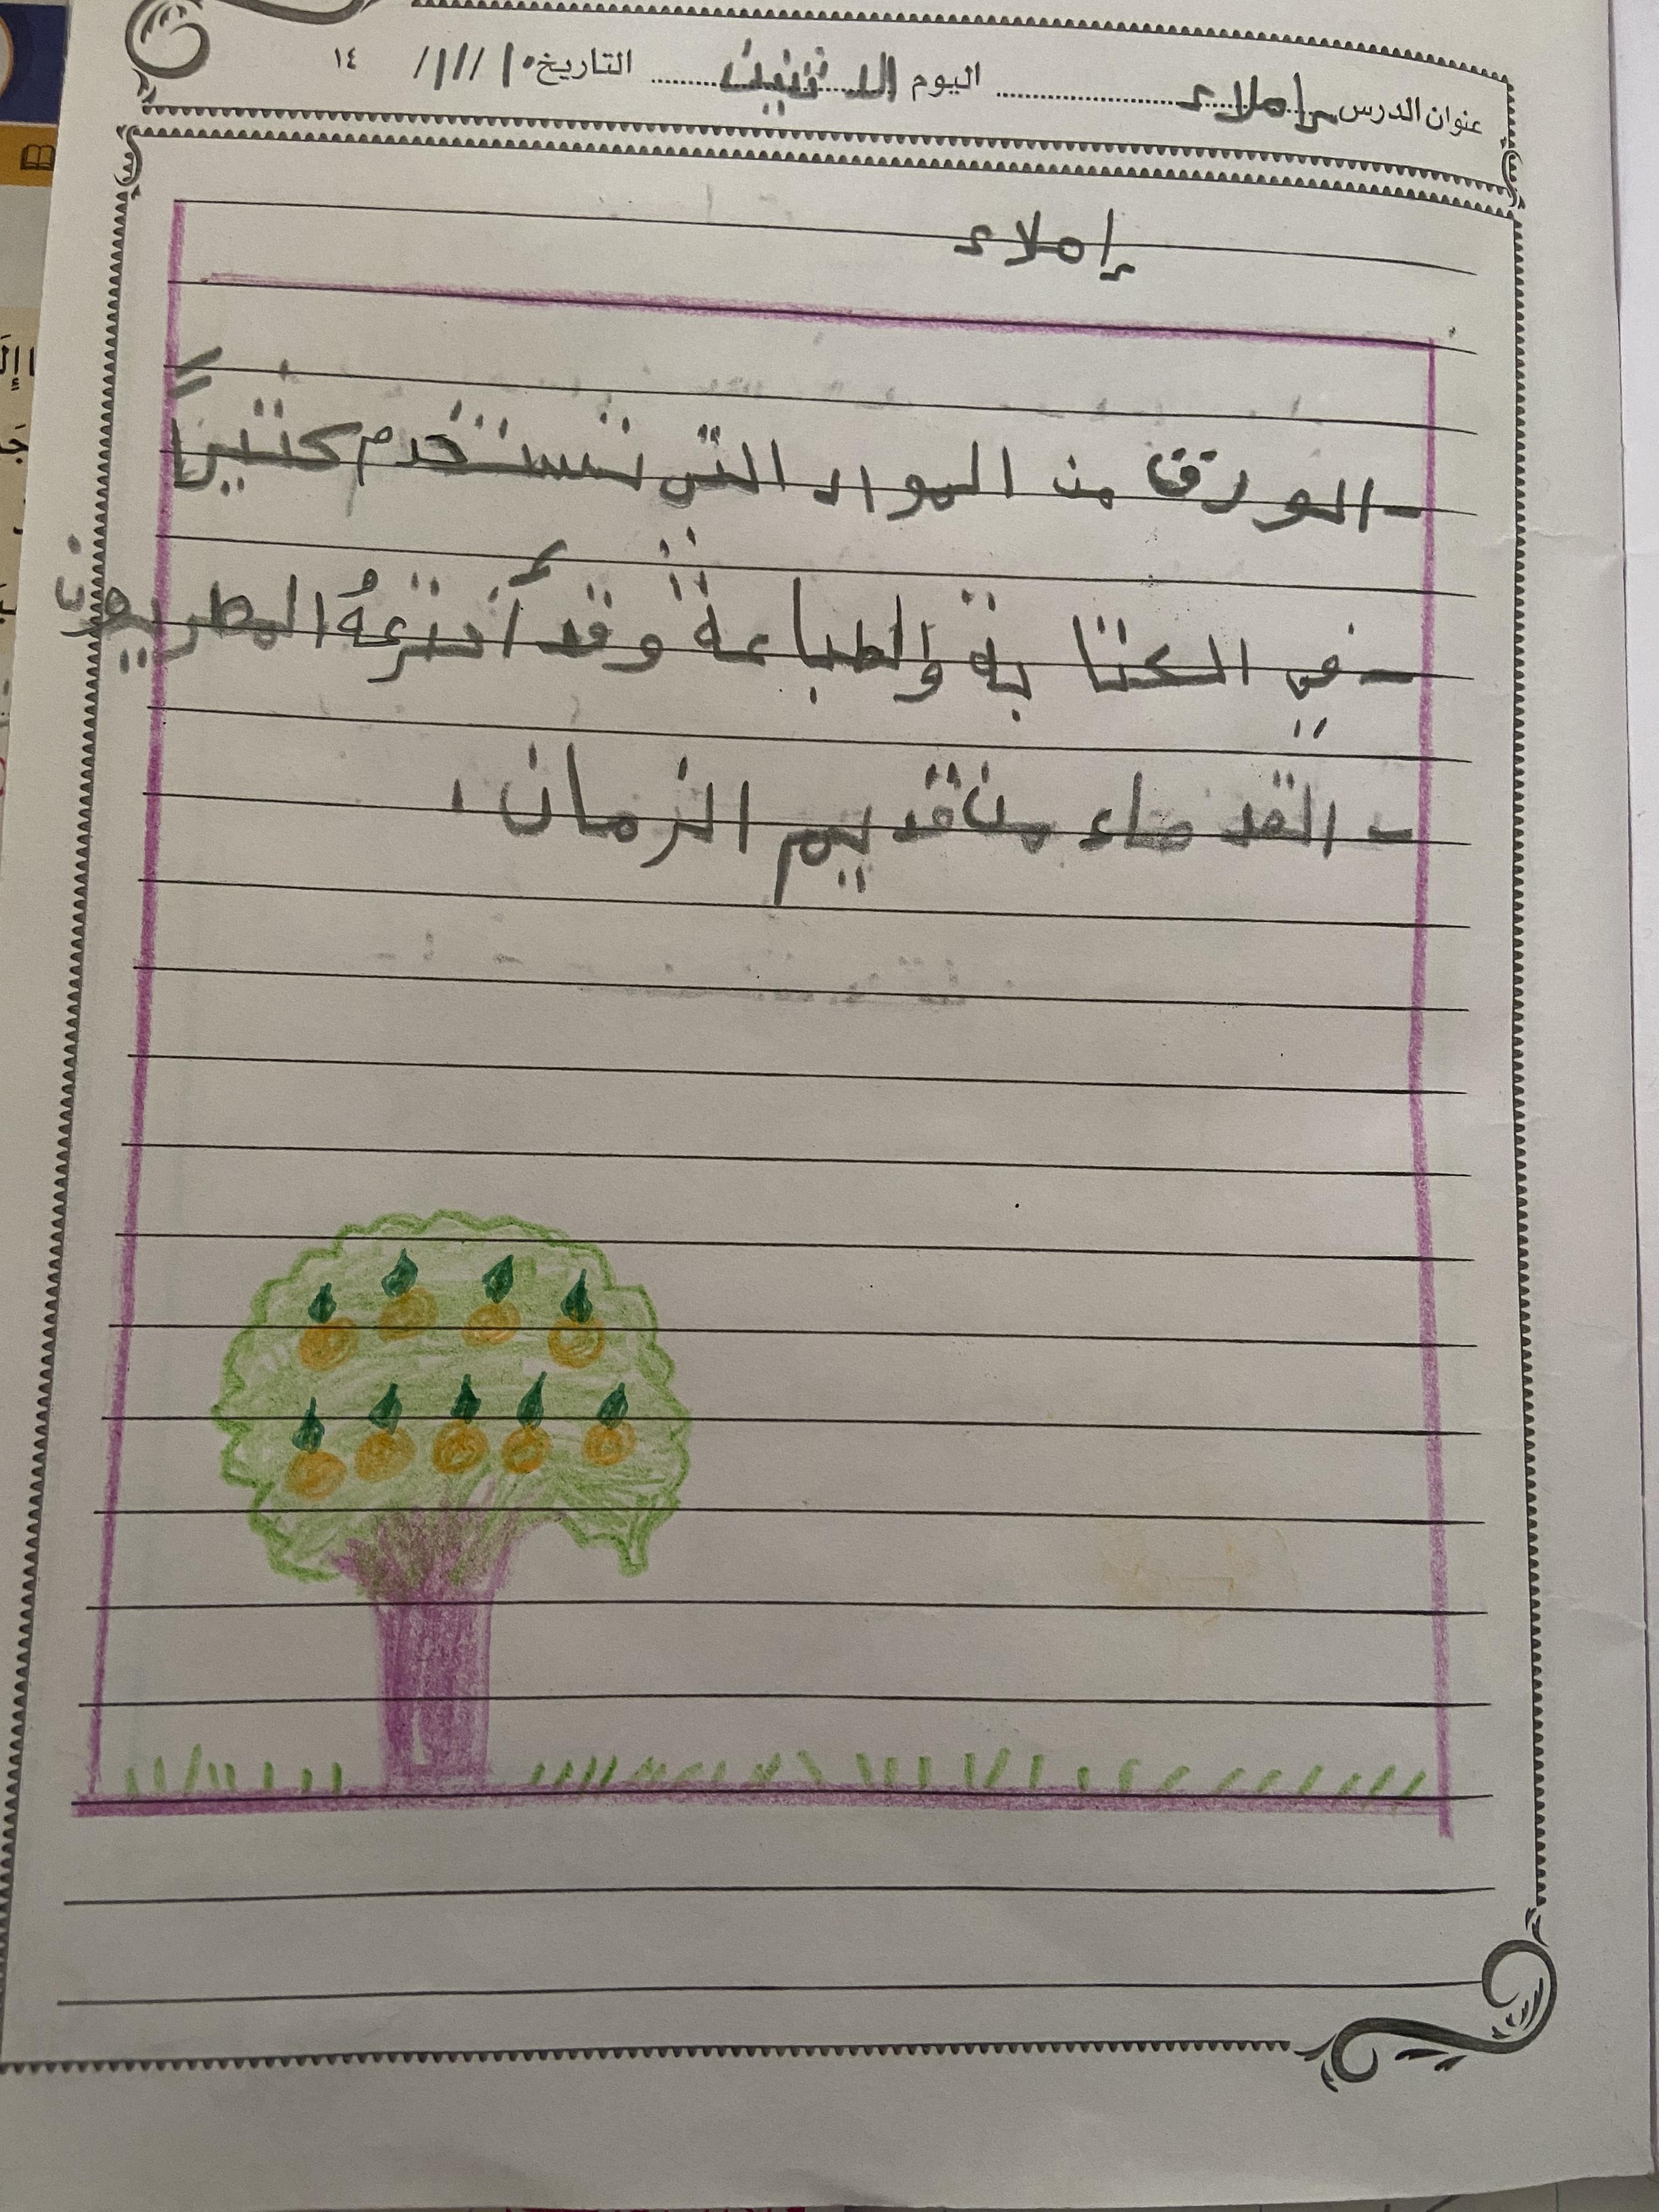 عنوان الدرس إملاء اليوم الاثنين التاريخ ١٠/١١/ ١٤
إملاء
- الورق من المواد التي تستخدم كثيراً
- في الكتابة والطباعة وقد أخترعهُ المصريون
- القدماء من قديم الزمان .